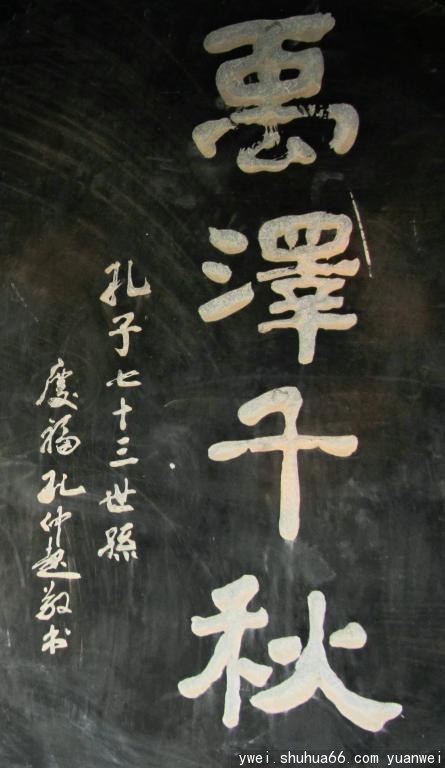 禹澤千秋
孔子七十三世孫
慶福孔仲起敬书
ywei.shuhua66.com yuanwei